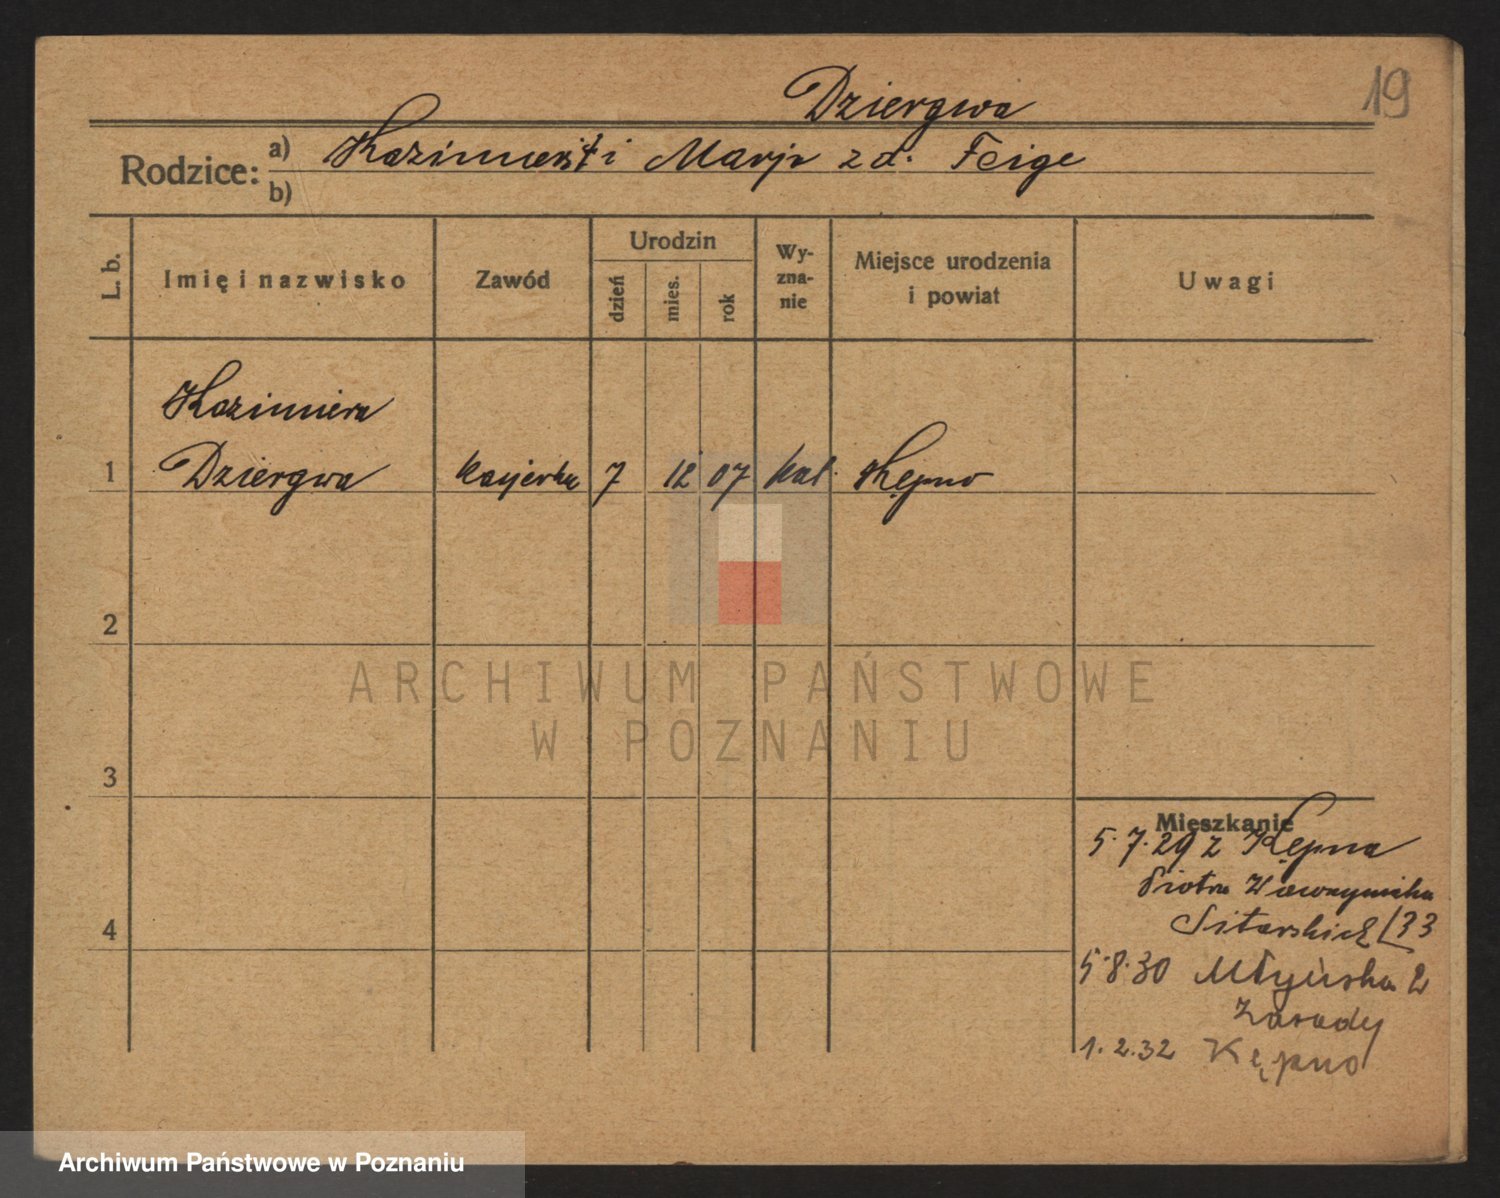 Dziergwa
19
Rodzice: a) Kazimierz i Marja z d. Feige
b)
L. b.
Imię i nazwisko
Zawód
Urodzin
dzień
mies.
rok
Wy-
zna-
nie
Miejsce urodzenia
i powiat
Uwagi
Kazimiera
1 Dziergwa kasjerka 7 12 07 kat. Kępno
2
ARCHIWUM PAŃSTWOWE
W POZNANIU
3
Mieszkanie
5.7.29 z Kępna
Piotra Wawrzyniaka
33
4
5.8.30 Młyńska 2
Zasady
1.2.32 Kępno
Archiwum Państwowe w Poznaniu